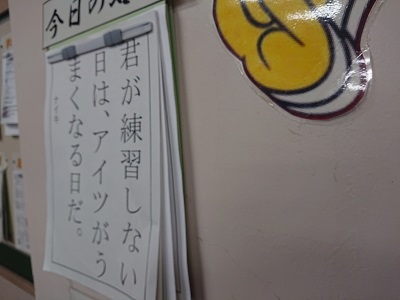 今日の
君が練習しない
日は、アイツがう
まくなる日だ。